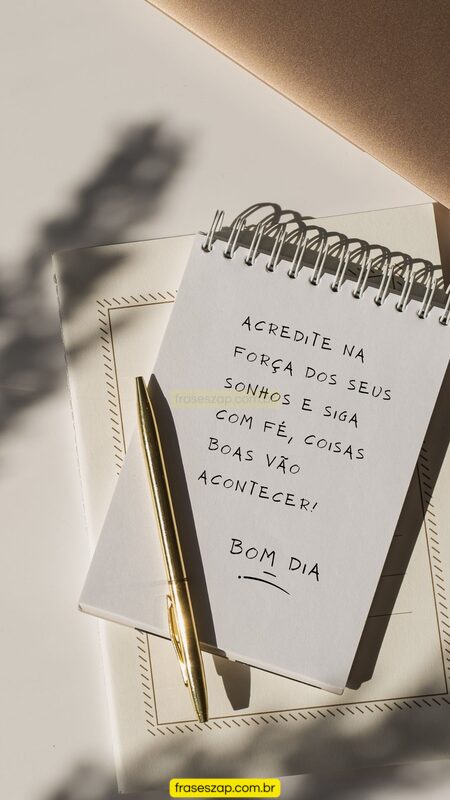 ACREDITE NA
FORÇA DOS SEUS
SONHOS E SIGA
COM FÉ, COISAS
BOAS VÃO
ACONTECER!
BOM DIA
fraseszap.com
fraseszap.com.br